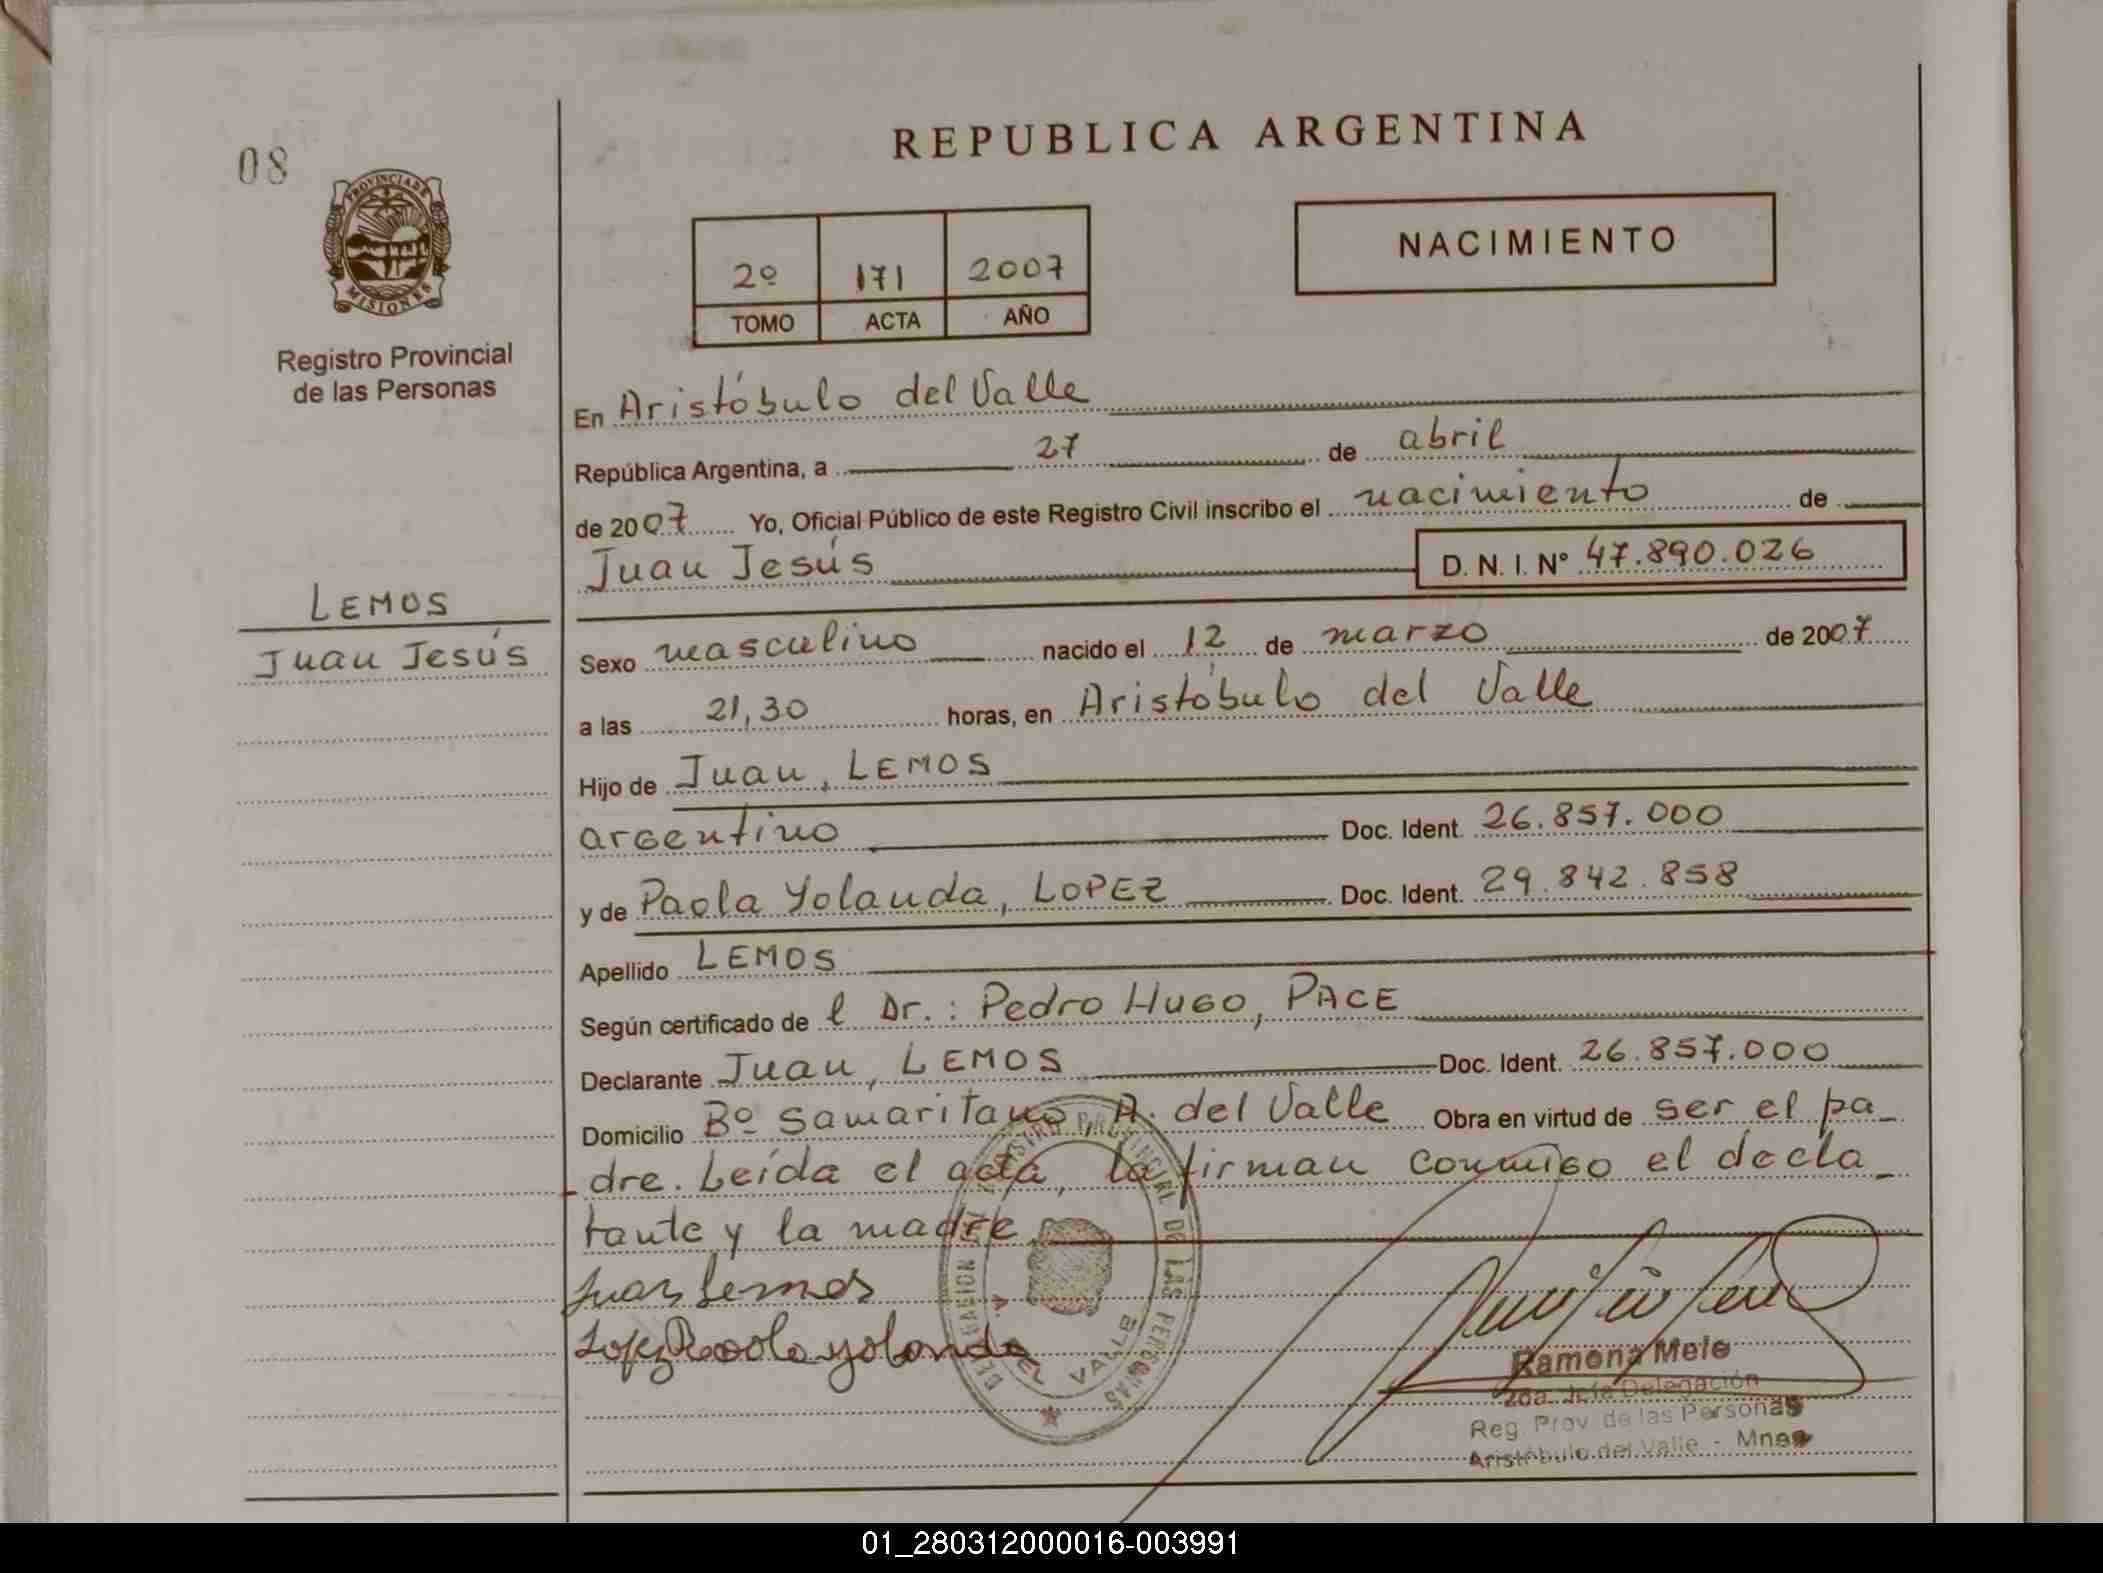 08
REPUBLICA ARGENTINA
PROVINCIA DE
MISIONES
Registro Provincial
de las Personas
2º 171 2007
TOMO ACTA AÑO
NACIMIENTO
En Aristóbulo del Valle
República Argentina, a 27 de abril
de 2007 Yo, Oficial Público de este Registro Civil inscribo el nacimiento de
Juan Jesús D. N. I. Nº 47.890.026
LEMOS
Juan Jesús
Sexo masculino nacido el 12 de marzo de 2007
a las 21,30 horas, en Aristóbulo del Valle
Hijo de Juan, LEMOS
argentino Doc. Ident. 26.857.000
y de Paola Yolanda, LOPEZ Doc. Ident. 29.842.858
Apellido LEMOS
Según certificado de l Dr.: Pedro Hugo, PACE
Declarante Juan, LEMOS Doc. Ident. 26.857.000
Domicilio Bº Samaritano, A. del Valle Obra en virtud de ser el pa_
dre. Leída el acta, la firman conmigo el decla_
rante y la madre
Juan Lemos
Lopez Paola yolanda
DELEGACION REGISTRO PROVINCIAL DE LAS PERSONAS
A. DEL VALLE
Ramona Melo
2da. Jefa Delegación
Reg. Prov. de las Personas
Aristóbulo del Valle - Mnes
01_280312000016-003991